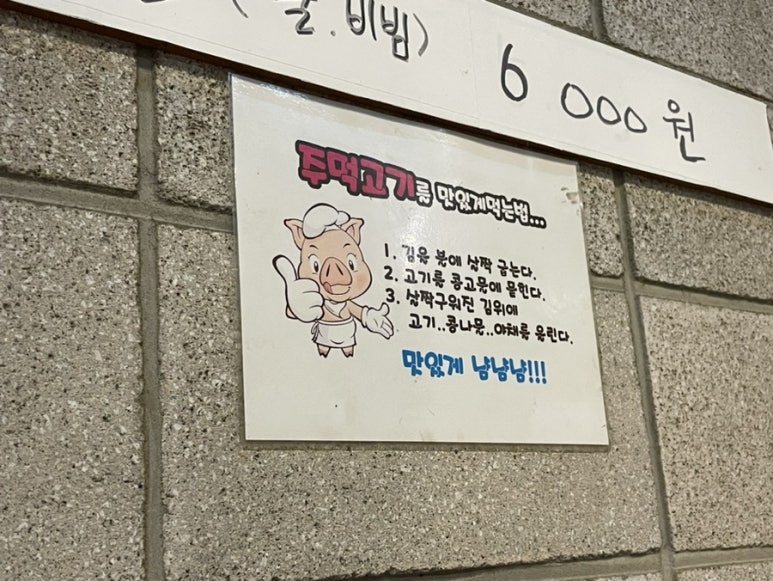 물.비빔) 6000원
주먹고기를 맛있게먹는법...
1. 김을 불에 살짝 굽는다.
2. 고기를 콩고물에 묻힌다.
3. 살짝구워진 김위에
고기..콩나물..야채를 올린다.
맛있게 냠냠냠!!!